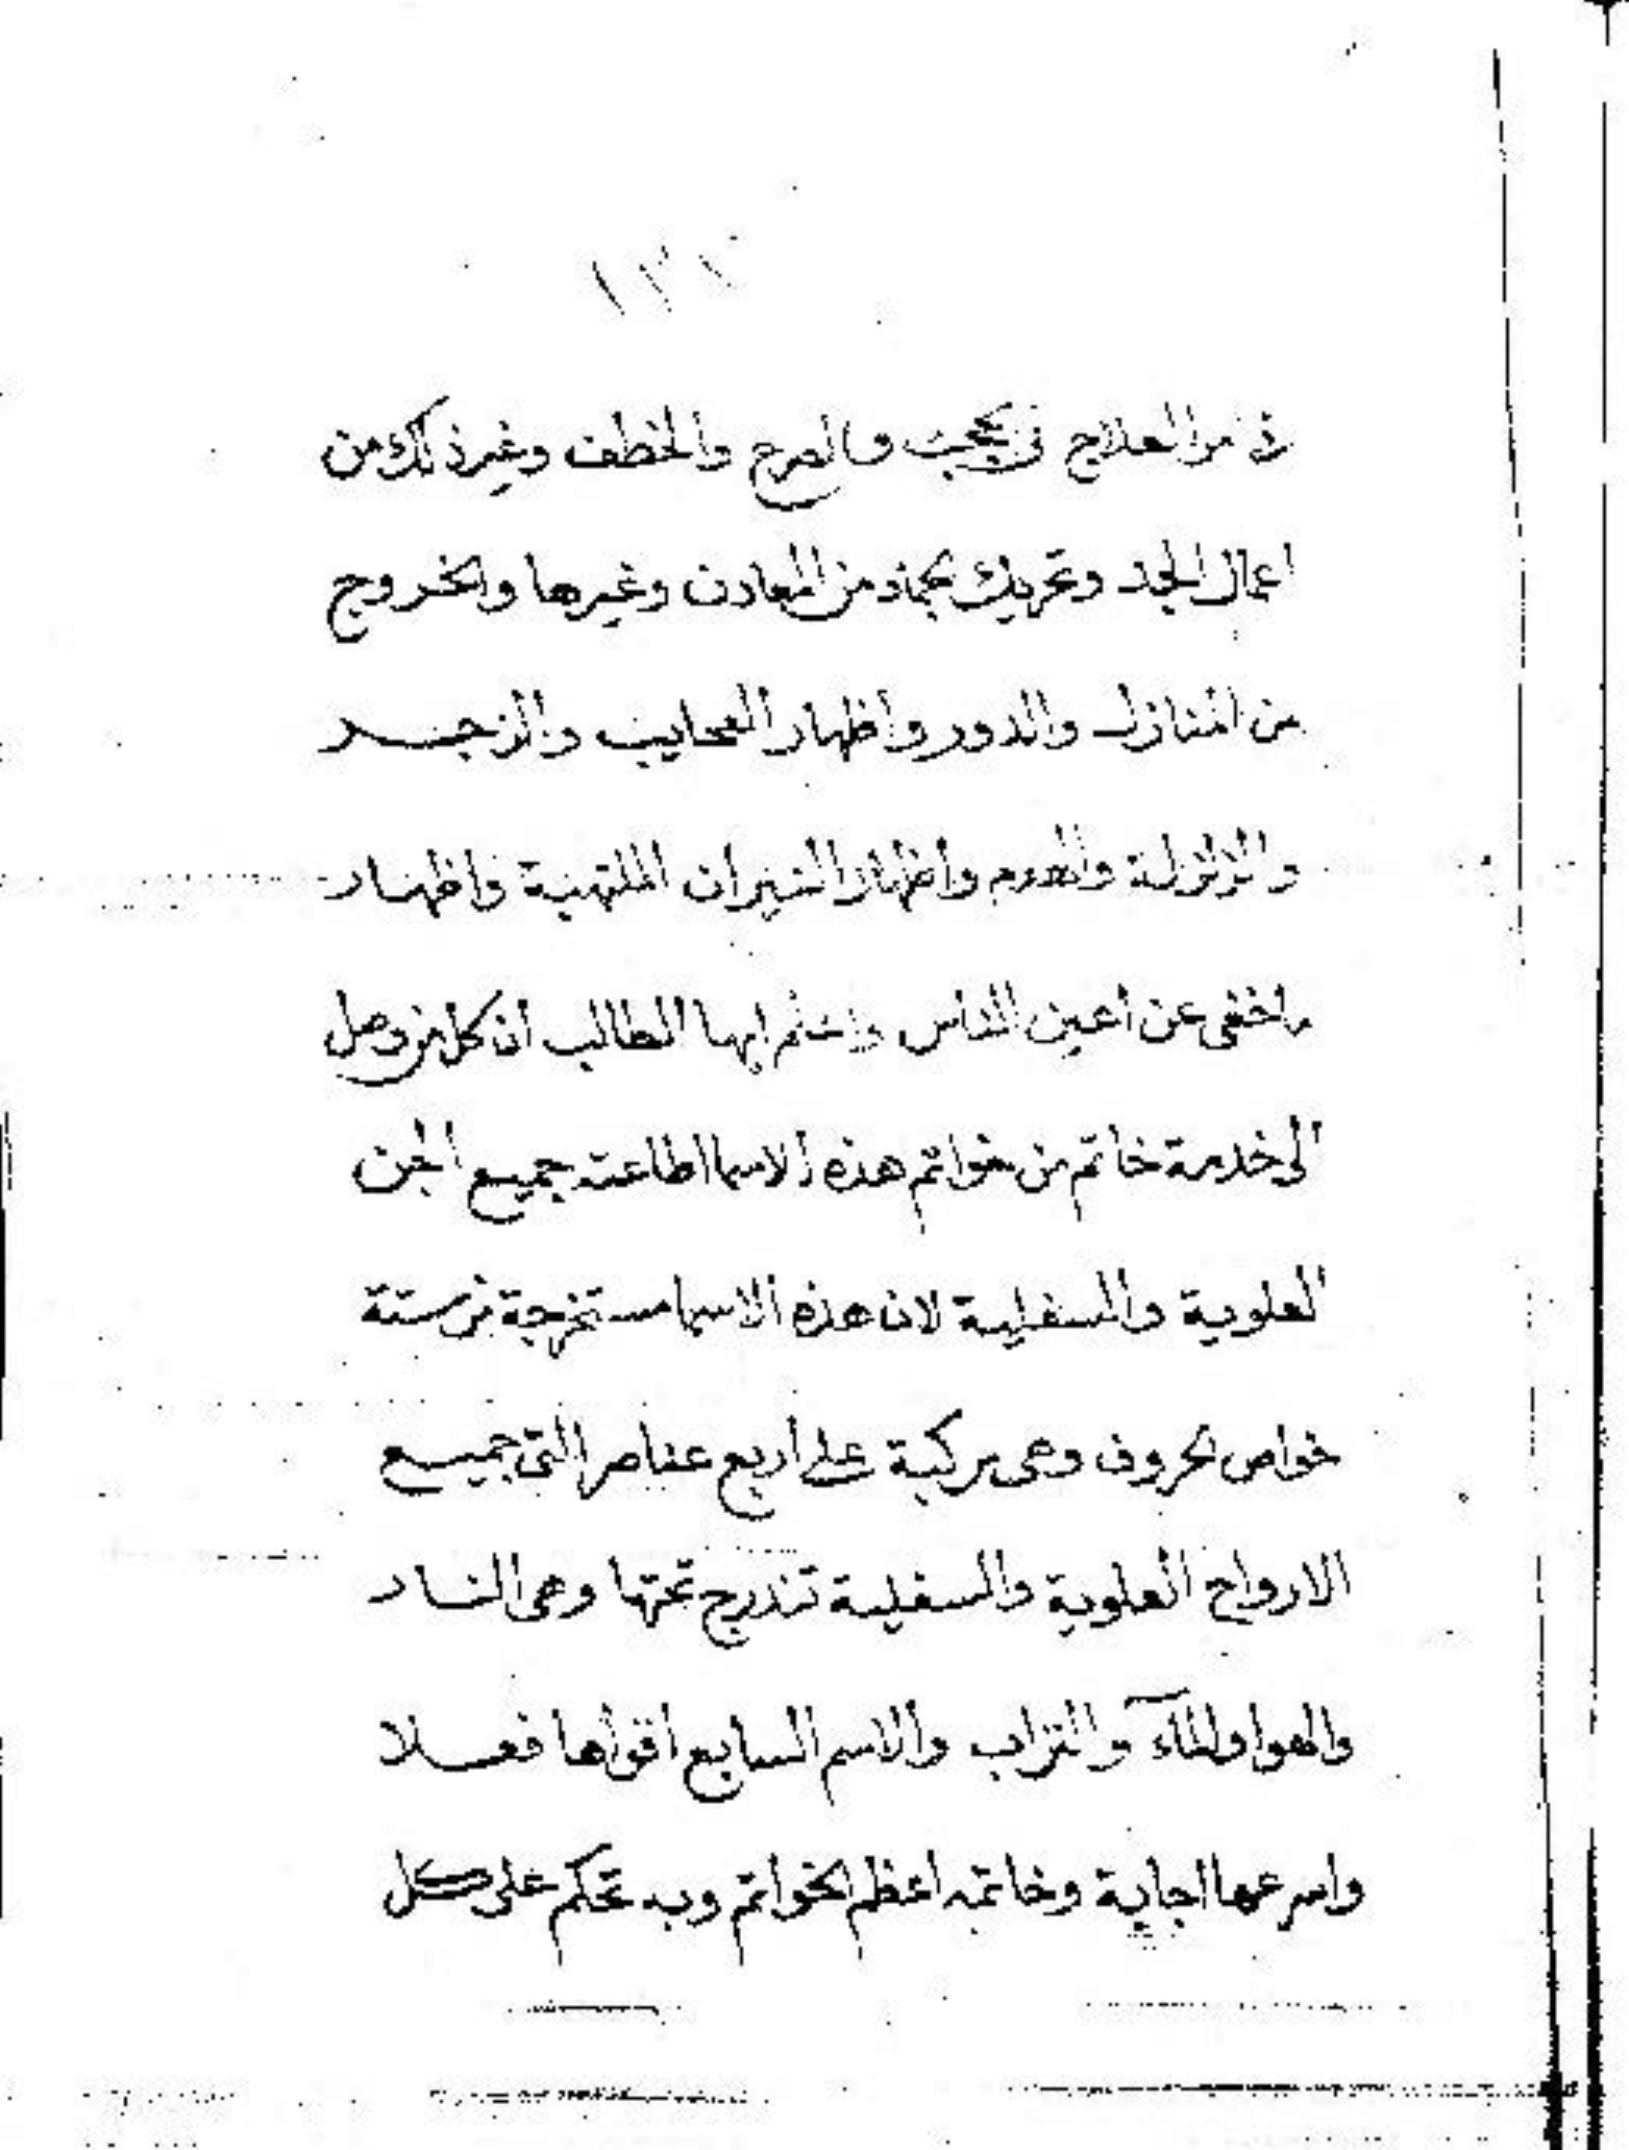 من العلاج والصرع والخطف وغير ذلك من
اعمال الجد وتحريك الجماد من المعادن وغيرها والخروج
من المنازل والدور واظهار العجايب والزجر
والزلزلة والهدم واظهار النيران الملتهبة واظهار
ما خفى عن اعين الناس واعلم ايها الطالب ان كل من وصل
الى خدمة خاتم من خواتم هذه الاسما اطاعته جميع الجن
العلوية والسفلية لان هذه الاسما مستخرجة من ستة
خواص الحروف وهى مركبة على اربع عناصر التى جميع
الارواح العلوية والسفلية تندرج تحتها وهى النار
والهوا والمآء والتراب والاسم السابع اقواها فعلا
واسرعها اجابة وخاتمه اعظم الخواتم وبه تحكم على كل